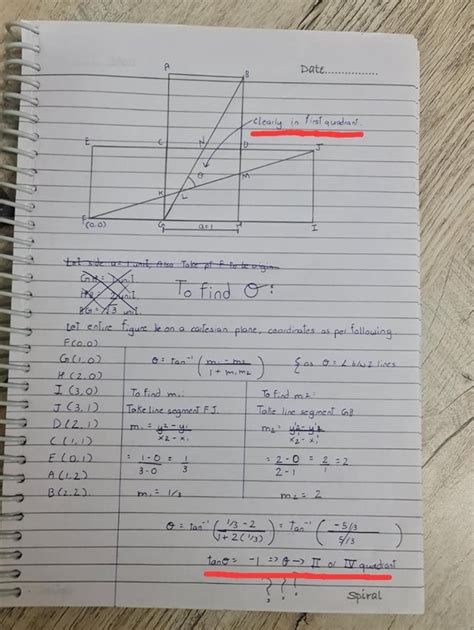 Date...............
A
B
clearly in first quadrant.
E
C
N
D
J
θ
M
K
L
F
(0,0)
G
a=1
H
I
Let side a = 1 unit, Also Take pt F to be
GH = 1 unit.
2 unit.
BG = √3 unit.
To find θ :
Let entire figure be on a cartesian plane, coordinates as per following.
F(0,0)
G(1,0)
H(2,0)
I(3,0)
J(3,1)
D(2,1)
C(1,1)
E(0,1)
A(1,2)
B(2,2)
θ = tan⁻¹ ( m₁ - m₂ / 1 + m₁m₂ ) { as θ = ∠ b/w 2 lines
To find m₁:
Take line segment FJ.
m₁ = y₂ - y₁ / x₂ - x₁
= 1-0 / 3-0 = 1/3
m₁ = 1/3
To find m₂:
Take line segment GB
m₂ = y₂ - y₁ / x₂ - x₁
= 2-0 / 2-1 = 2/1 = 2
m₂ = 2
θ = tan⁻¹ ( 1/3 - 2 / 1 + 2(1/3) ) = tan⁻¹ ( -5/3 / 5/3 )
tanθ = -1 => θ → II or IV quadrant
? ? ?
Spiral